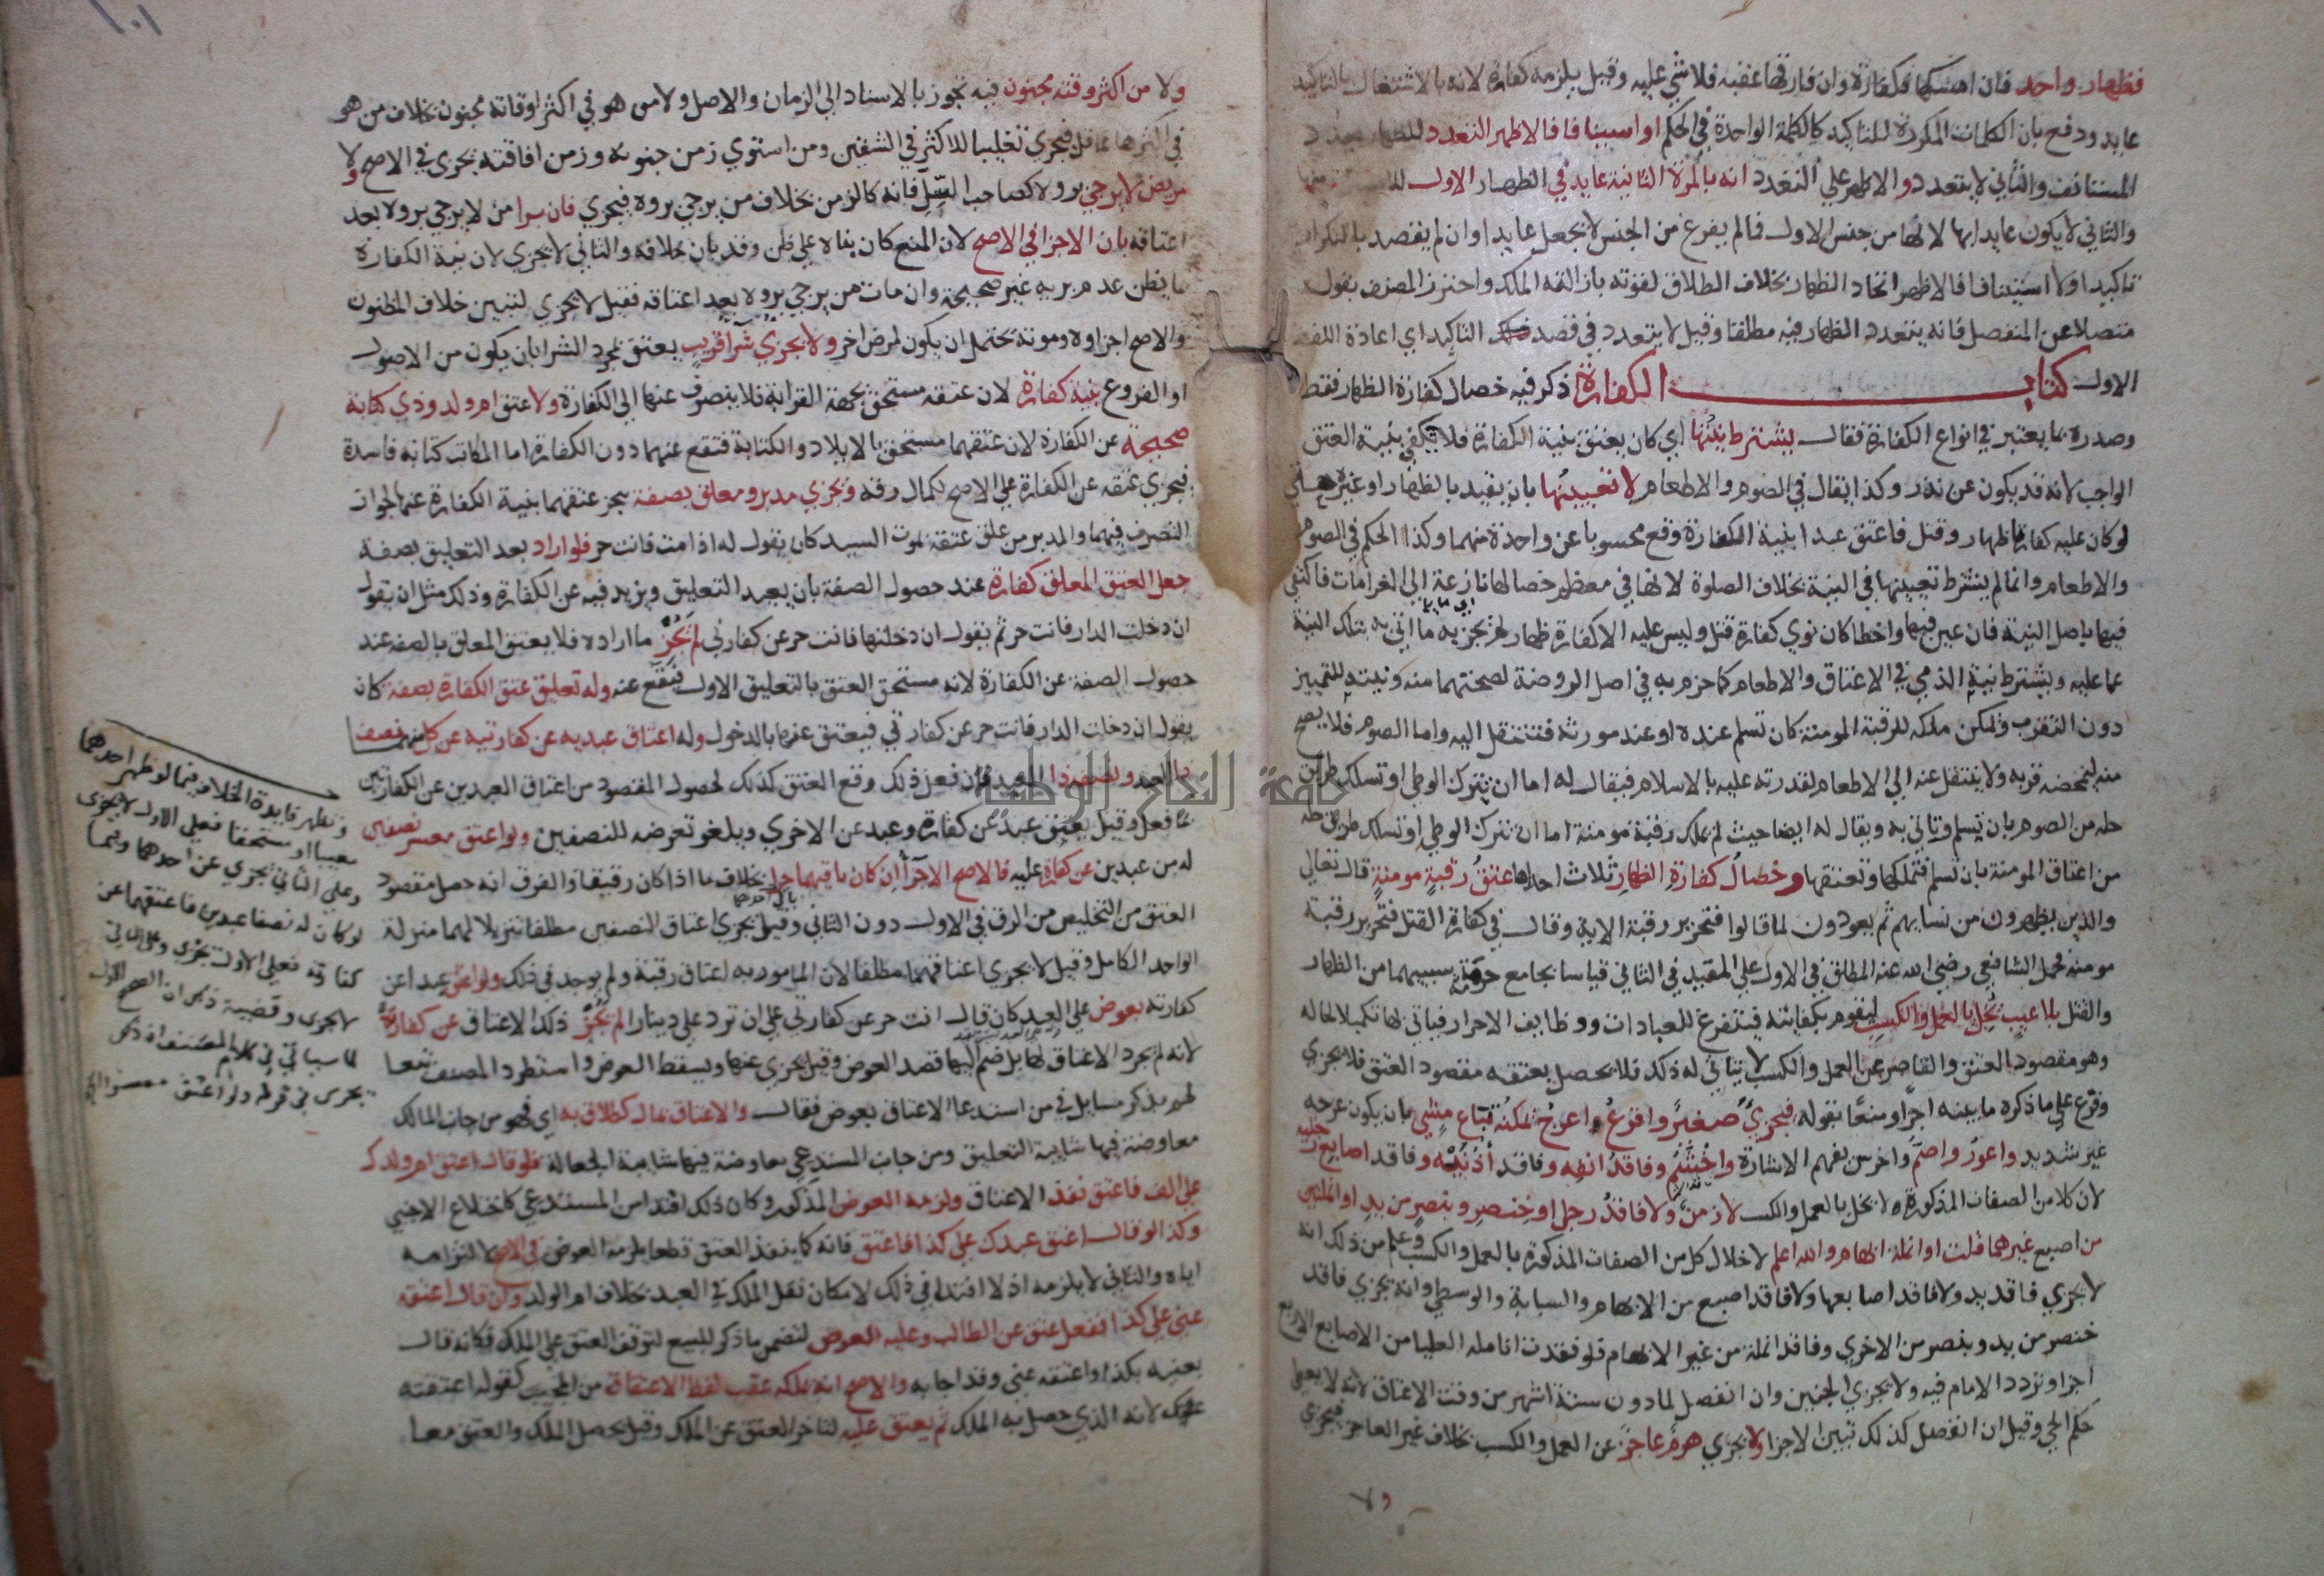 فظهار واحد فان امسكها فكفارة وان فارقها عقبه فلا شي عليه وقيل يلزمه كفارة لانه بالاشتغال بالتاكيد
عايد ودفع بان الكلمات المكررة للتاكيد كالكلمة الواحدة في الحكم او استينافا فالاظهر التعدد للظهار
المستانف والثاني لا يتعدد والاظهر علي التعدد انه بالمرة الثانية عايد في الظهار الاول
والثاني لا يكون عايدا بها لانها من جنس الاول فما لم يفرغ من الجنس لا يجعل عايدا وان لم يقصد بالتكرار
تاكيدا ولا استينافا فالاظهر اتحاد الظهار بخلاف الطلاق لقوته بازالته الملك واحترز المصنف بقوله
متصلا عن المنفصل فانه يتعدد الظهار فيه مطلقا وقيل لا يتعدد في قصد التاكيد اي اعادة اللفظ
الاول كتاب الكفارة ذكر فيه خصال كفارة الظهار فقط
وصدره بما يعتبر في انواع الكفارة فقال يشترط نيتها اي كان يعتق بنية الكفارة فلا يكفي نية العتق
الواجب لانه قد يكون عن نذر وكذا يقال في الصوم والاطعام لا تعيينها بان يقيد بالظهار او غيره
لو كان عليه كفارتا ظهار وقتل فاعتق عبدا بنية الكفارة وقع محسوبا عن واحدة منهما وكذا الحكم في الصوم
والاطعام وانما لم يشترط تعيينها في النية بخلاف الصلوة لانها في معظم خصالها نازعة الي الغرامات فاكتفي
فيها باصل النية فان عين فيها واخطا كان نوي كفارة قتل وليس عليه الا كفارة ظهار لم يجزيه ما اتي به بتلك النية
عما عليه ويشترط نية الذمي في الاعتاق والاطعام كما جزم به في اصل الروضة لصحتهما منه ونيته للتمييز
دون التقرب وتمكن ملكه للرقبة المومنة كان تسلم عنده او عند مورثه فتنتقل اليه واما الصوم فلا يصح
منه لتمحضه قربه ولا ينتقل عنه الي الاطعام لقدرته عليه بالاسلام فيقال له اما ان تترك الوطي او تسلك طريق
حله من الصوم بان تسلم وتاتي به ويقال له ايضا حيث لم يملك رقبة مومنة اما ان تترك الوطي او تسلك طريق حله
من اعتاق المومنة بان تسلم فتملكها وتعتقها وخصال كفارة الظهار ثلاث احداها عتق رقبة مومنة قال تعالي
والذين يظهرون من نسايهم ثم يعودون لما قالوا فتحرير رقبة الاية وقال في كفارة القتل فتحرير رقبة
مومنه فحمل الشافعي رضي الله عنه المطلق في الاول علي المقيد في الثاني قياسا بجامع حرمة سببيهما من الظهار
والقتل بلا عيب يخل بالعمل والكسب ليقوم بكفايته فيتفرغ للعبادات ووظايف الاحرار فياتي بها تكميلا لحاله
وهو مقصود العتق والقاصر عن العمل والكسب لا يتاتي له ذلك فلا يحصل بعتقه مقصود العتق فلا يجزي
وفرع علي ما ذكره ما يبينه اجزا ومنعا بقوله فيجزي صغير واقرع واعرج يمكنه تباع مشي بان يكون عرجه
غير شديد واعور واصم واخرس يفهم الاشارة واخشم وفاقد انفه وفاقد اذنيه وفاقد اصابع رجليه
لان كلا من الصفات المذكورة لا يخل بالعمل والكسب لا زمن ولا فاقد رجل او خنصر وبنصر من يد او انملتين
من اصبع غيرهما قلت او انملة ابهام والله اعلم لاخلال كل من الصفات المذكورة بالعمل والكسب وعلم من ذلك انه
لا يجزي فاقد يد ولا فاقد اصابعها ولا فاقد اصبع من الابهام والسبابة والوسطي وانه يجزي فاقد
خنصر من يد وبنصر من الاخري وفاقد انملة من غير الابهام فلو فقدت انامله العليا من الاصابع الاربع
اجزا وتردد الامام فيه ولا يجزي الجنين وان انفصل لما دون ستة اشهر من وقت الاعتاق لانه لا يعطي
حكم الحي وقيل ان انفصل كذلك تبين الاجزا ولا يجزي هرم عاجز عن العمل والكسب بخلاف غير العاجز فيجزي
ولا
ولا من اكثر وقته مجنون فيه تجوز بالاسناد الي الزمان والاصل ولا من هو في اكثر اوقاته مجنون بخلاف من هو
في اكثرها عاقل فيجزي تغليبا للاكثر في الشقين ومن استوي زمن جنونه وزمن افاقته يجزي في الاصح ولا
مريض لا يرجي بروه كصاحب السل فانه كالزمن بخلاف من يرجي بروه فيجزي فان برا من لا يرجي بروه بعد
اعتاقه بان الاجزا في الاصح لان المنع كان بناه علي ظن وقد بان خلافه والثاني لا يجزي لان نية الكفارة
بما يظن عدم بريه غير صحيحة وان مات من يرجي بروه بعد اعتاقه فقيل لا يجزي لتبين خلاف المظنون
والاصح اجزاوه وموته يحتمل ان يكون لمرض اخر ولا يجزي شرا قريب يعتق بمجرد الشرا بان يكون من الاصول
او الفروع بنية كفارة لان عتقه مستحق بجهة القرابة فلا ينصرف عنها الي الكفارة ولا عتق ام ولد وذي كتابة
صحيحة عن الكفارة لان عتقهما مستحق بالايلاد والكتابة فتقع عنهما دون الكفارة اما المكاتب كتابة فاسدة
فيجزي عتقه عن الكفارة علي الاصح لكمال رقه ويجزي مدبر ومعلق بصفة ينجز عتقهما بنية الكفارة عنها لجواز
التصرف فيهما والمدبر من علق عتقه بموت السيد كان يقول له اذا مت فانت حر فلو اراد بعد التعليق بصفة
جعل العتق المعلق كفارة عند حصول الصفة بان يعيد التعليق ويزيد فيه عن الكفارة وذلك مثل ان يقول
ان دخلت الدار فانت حر ثم يقول ان دخلتها فانت حر عن كفارتي لم يجز ما اراده فلا يعتق المعلق بالصفه عند
حصول الصفة عن الكفارة لانه مستحق العتق بالتعليق الاول فيقع عنه وله تعليق عتق الكفارة بصفة كان
يقول ان دخلت الدار فانت حر عن كفارتي فيعتق عنها بالدخول وله اعتاق عبديه عن كفارتيه عن كل منهما نصف
ذا العبد ونصف ذا العبد فان فعل ذلك وقع العتق كذلك لحصول المقصود من اعتاق العبدين عن الكفارتين
بما فعل وقيل يعتق عبد عن كفارة وعبد عن الاخري ويلغو تعرضه للنصفين ولو اعتق معسر نصفين
له من عبدين عن كفارة عليه فالاصح الاجزا ان كان باقيهما حرا بخلاف ما اذا كان رقيقا والفرق انه حصل مقصود
العتق من التخليص من الرق في الاول دون الثاني وقيل يجزي اعتاق النصفين مطلقا تنزيلا لهما منزلة
الواحد الكامل وقيل لا يجزي اعتاقهما مطلقا لان المامور به اعتاق رقبة ولم يوجد في ذلك ولو اعتق عبدا عن
كفارته بعوض علي العبد كان قال انت حر عن كفارتي علي ان ترد علي دينارا لم يجز ذلك الاعتاق عن كفارة
لانه لم يجرد الاعتاق لها بل ضم اليها قصد العوض وقيل يجزي عنها ويسقط العوض واستطرد المصنف تبعا
لهم بذكر مسايل في من استدعا الاعتاق بعوض فقال والاعتاق بمال كطلاق به اي فهو من جانب المالك
معاوضة فيها شايبة التعليق ومن جانب المستدعي معاوضة فيها شايبة الجعالة فلو قال اعتق ام ولدك
علي الف فاعتق نفذ الاعتاق ولزمه العوض المذكور وكان ذلك افتدا من المستدعي كاختلاع الاجنبي
وكذا لو قال اعتق عبدك علي كذا فاعتق فانه كما ينفذ العتق قطعا يلزمه العوض في الاصح لالتزامه
اياه والثاني لا يلزمه اذ لا افتدا في ذلك لامكان نقل الملك في العبد بخلاف ام الولد وان قال اعتقه
عني علي كذا ففعل عتق عن الطالب وعليه العوض لتضمن ما ذكر للبيع لتوقف العتق علي الملك فكانه قال
بعنيه بكذا واعتقه عني وقد اجابه والاصح انه يملكه عقب لفظ الاعتاق من المجيب كقوله اعتقته
عنك لانه الذي حصل به الملك ثم يعتق عليه لتاخر العتق عن الملك وقيل يحصل الملك والعتق معا
وتظهر فايدة الخلاف فيما لو ظهر احدهما
معيبا او مستحقا فعلي الاول لا يجزي
وعلي الثاني يجزي عن احدهما وفيما
لو كان له نصفا عبدين فاعتقهما عن
كفارته فعلي الاول يجزي وعلي الثاني
لا يجزي وقضية ذكر ان الصحيح الاول
لما سياتي في كلام المصنف
جامعة النجاح الوطنية